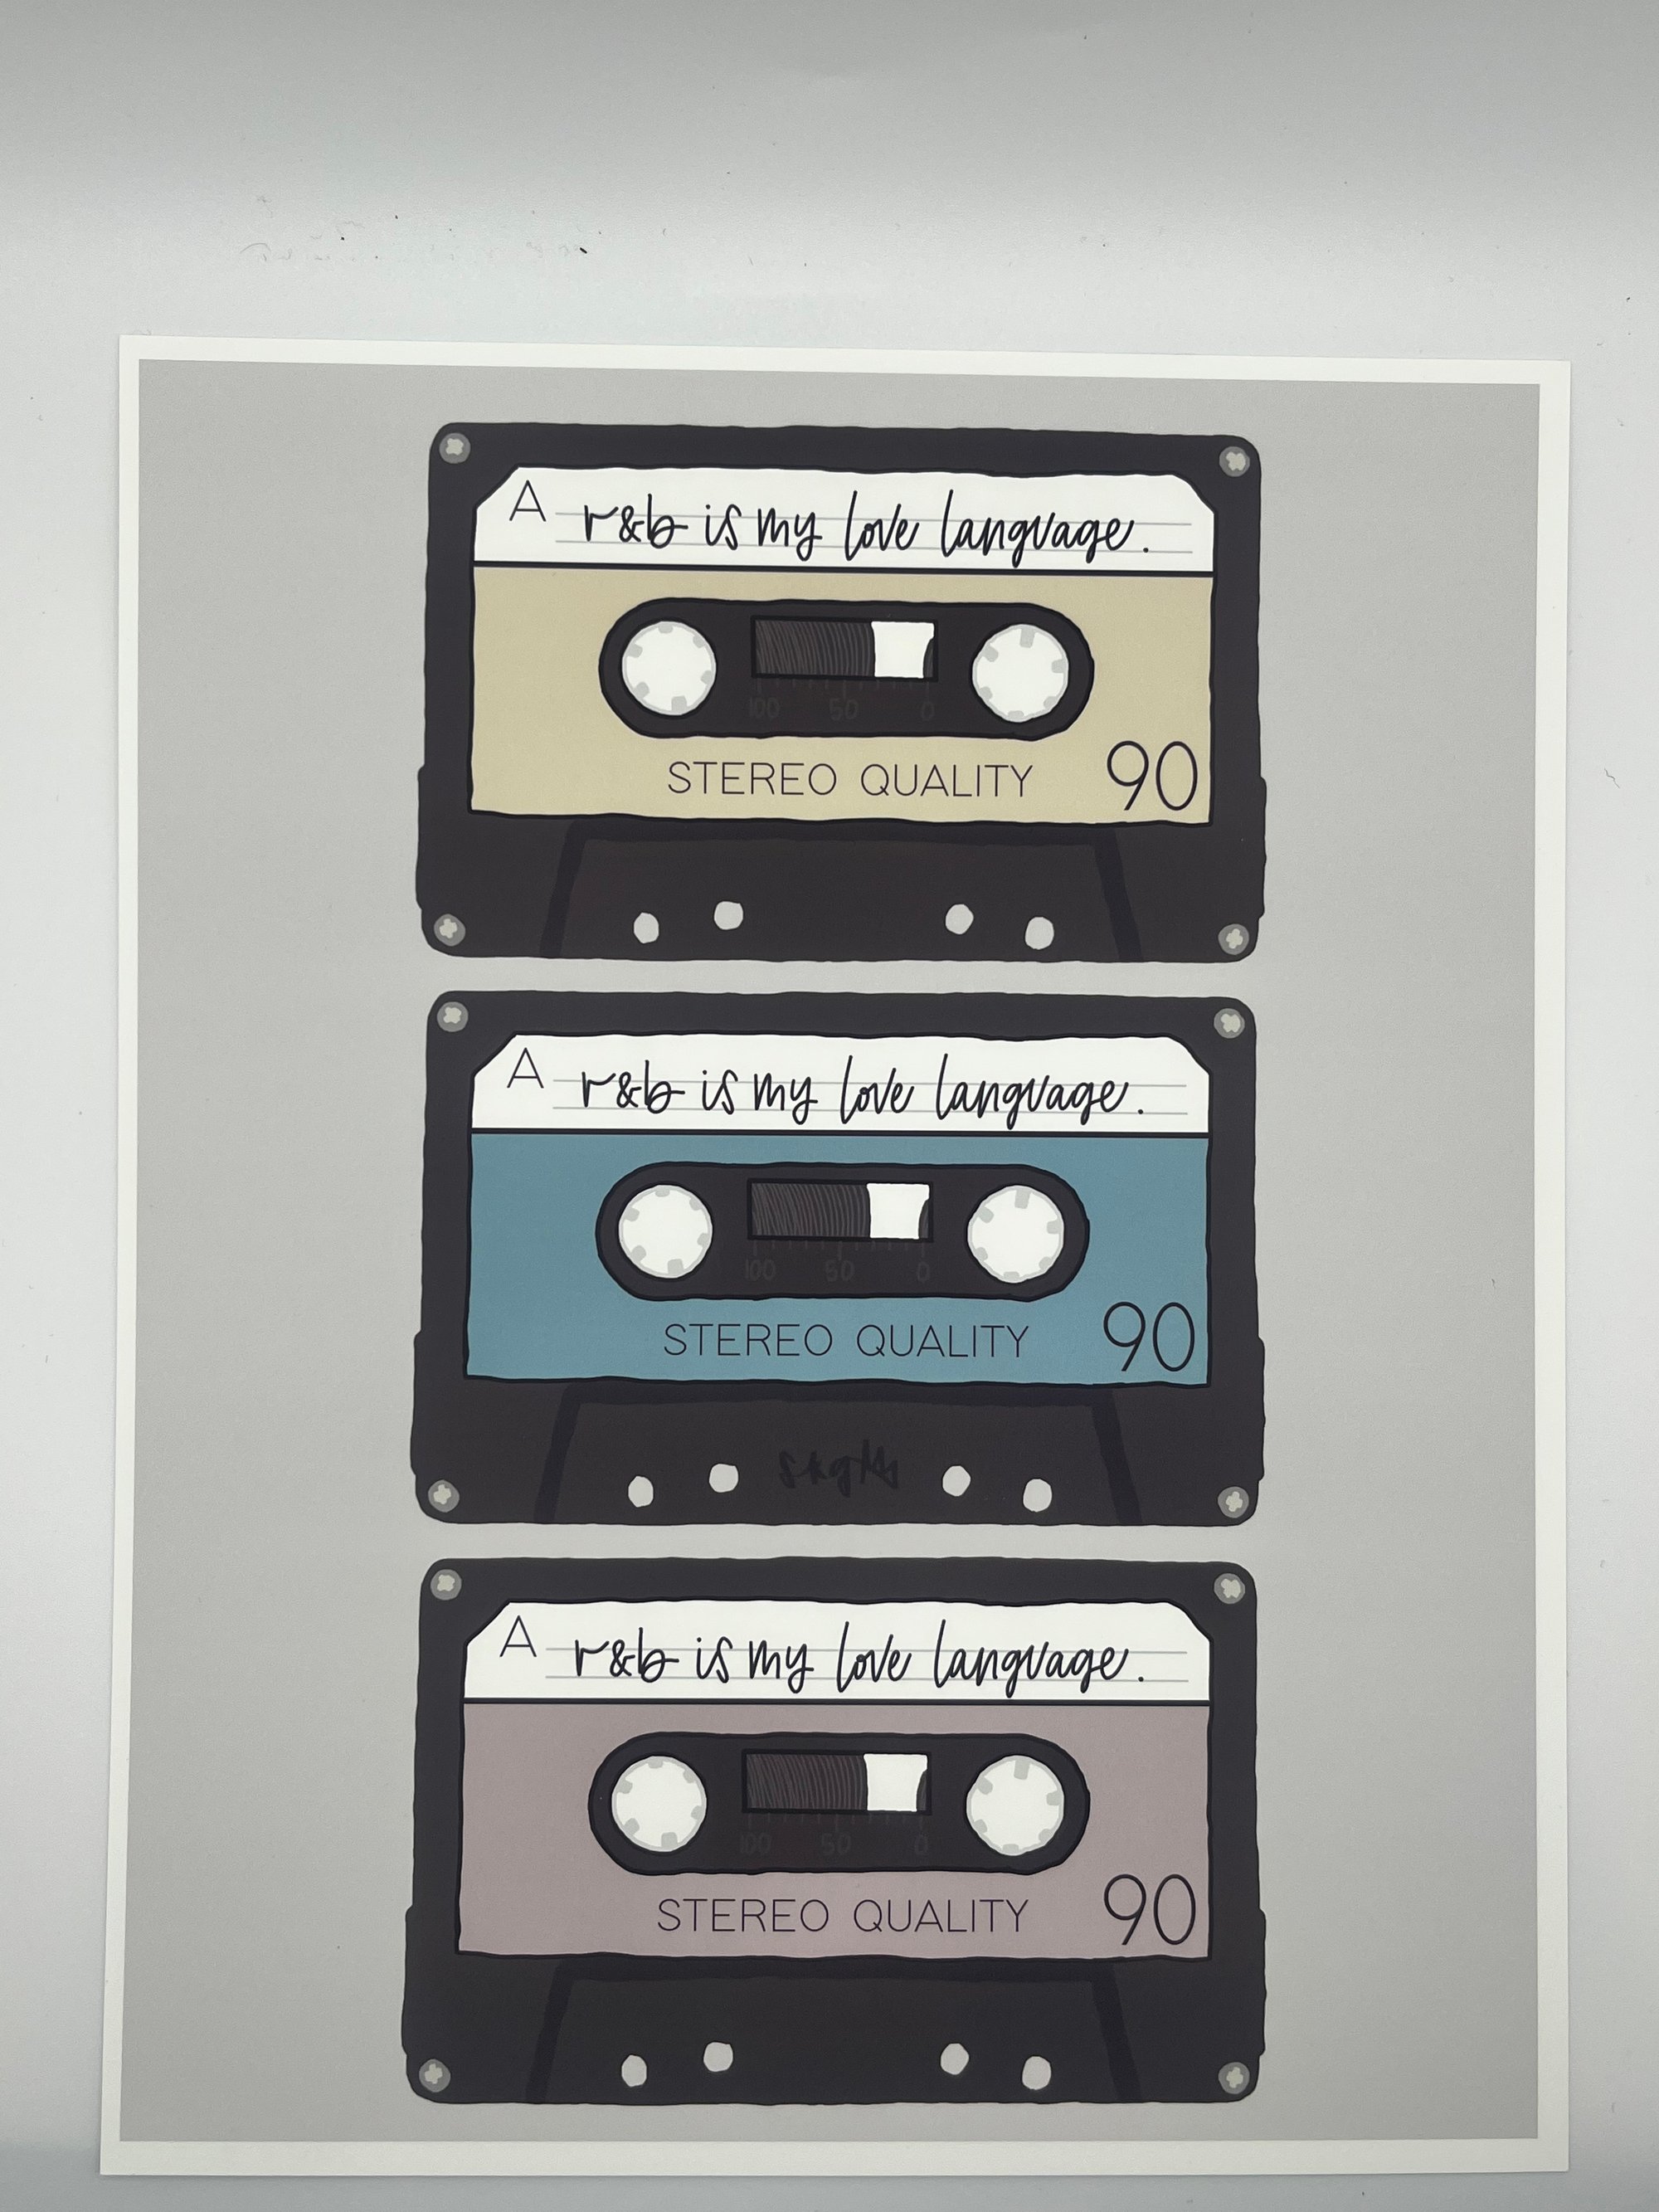 A r&b is my love language.
100 50 0
STEREO QUALITY 90
A r&b is my love language.
100 50 0
STEREO QUALITY 90
A r&b is my love language.
100 50 0
STEREO QUALITY 90